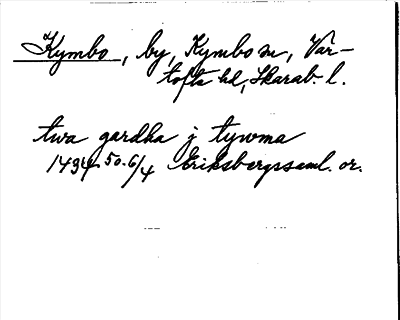 Kymbo, by, Kymbo sn, Var-
tofta hd, Skarab. l.
twa gardha j tywma
1434 50. 6/4 Eriksbergssaml. or.